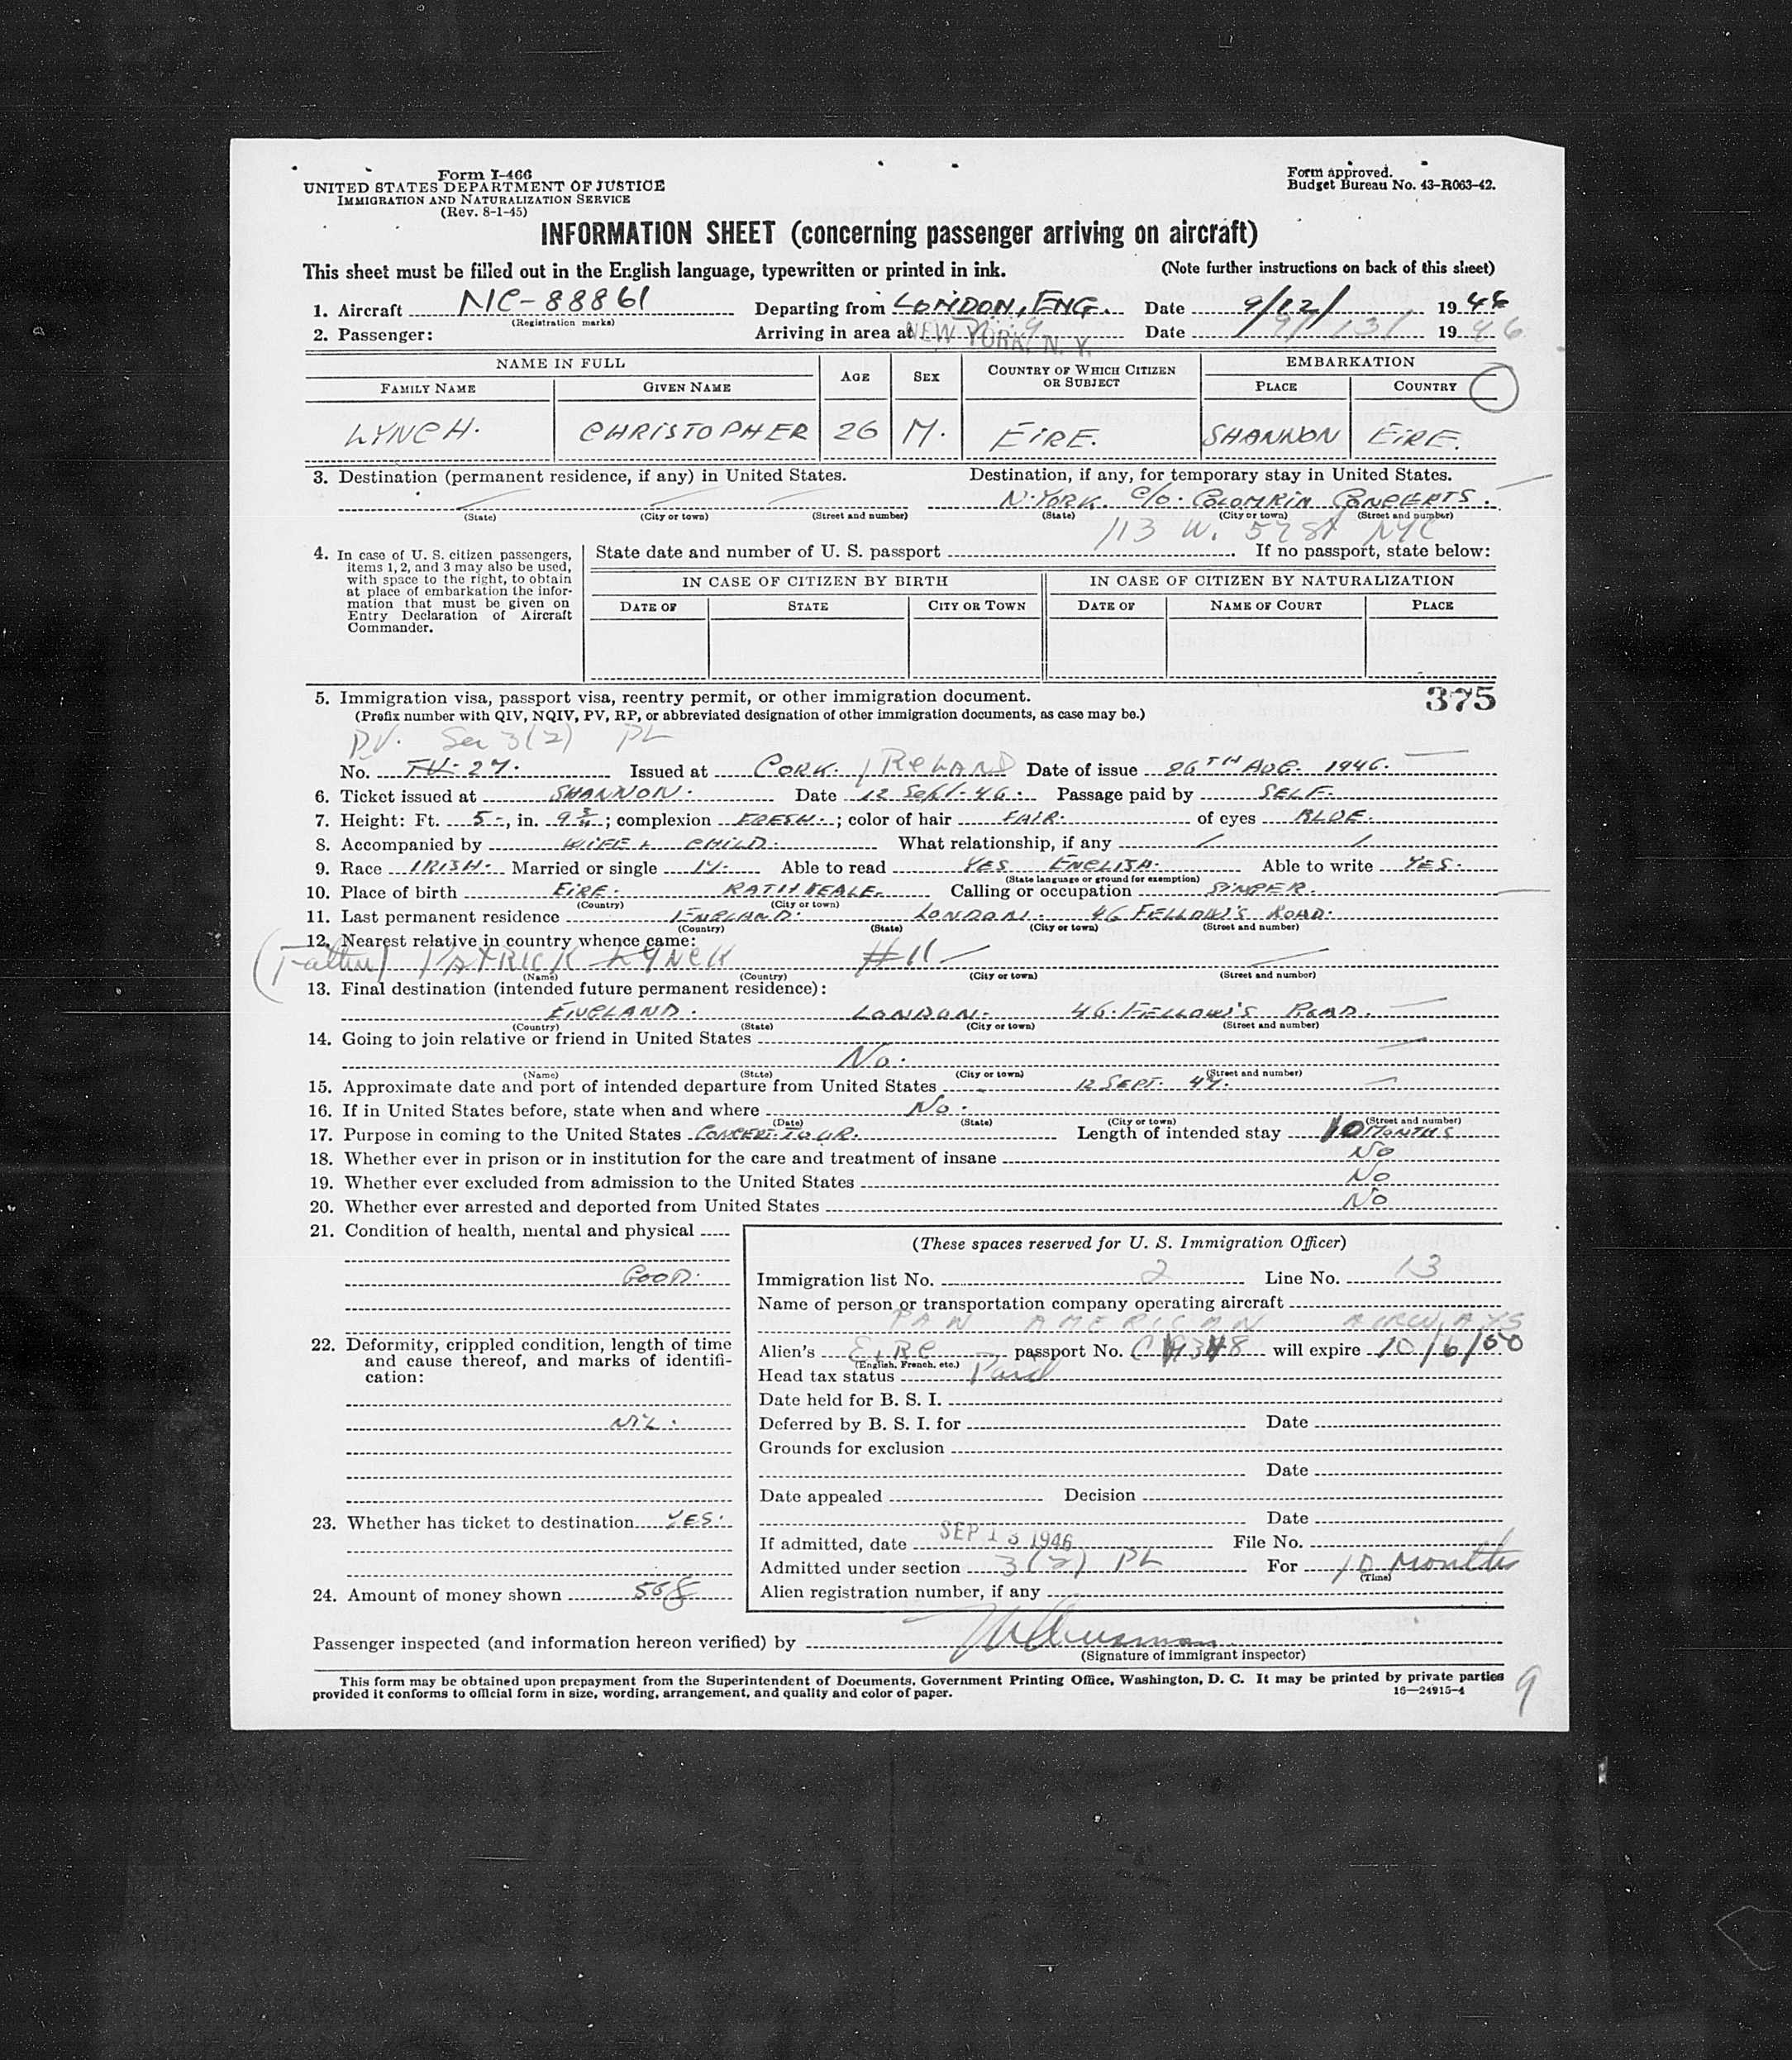 Form I-466
UNITED STATES DEPARTMENT OF JUSTICE
IMMIGRATION AND NATURALIZATION SERVICE
(Rev. 8-1-45)
Form approved.
Budget Bureau No. 43-R063-42.
INFORMATION SHEET (concerning passenger arriving on aircraft)
This sheet must be filled out in the English language, typewritten or printed in ink. (Note further instructions on back of this sheet)
1. Aircraft NC-88861 Departing from LONDON, ENG. Date 9/12/ 1946
(Registration marks)
2. Passenger: Arriving in area at NEW YORK, N. Y. Date 9/13/ 1946
NAME IN FULL AGE SEX COUNTRY OF WHICH CITIZEN OR SUBJECT EMBARKATION
FAMILY NAME GIVEN NAME PLACE COUNTRY
LYNCH. CHRISTOPHER 26 M. EIRE. SHANNON EIRE.
3. Destination (permanent residence, if any) in United States. Destination, if any, for temporary stay in United States.
N. YORK c/o. COLOMBIA CONCERTS.
(State) (City or town) (Street and number) (State) (City or town) (Street and number)
113 W. 57 St NYC
4. In case of U. S. citizen passengers, items 1, 2, and 3 may also be used, with space to the right, to obtain at place of embarkation the information that must be given on Entry Declaration of Aircraft Commander.
State date and number of U. S. passport If no passport, state below:
IN CASE OF CITIZEN BY BIRTH IN CASE OF CITIZEN BY NATURALIZATION
DATE OF STATE CITY OR TOWN DATE OF NAME OF COURT PLACE
375
5. Immigration visa, passport visa, reentry permit, or other immigration document.
(Prefix number with QIV, NQIV, PV, RP, or abbreviated designation of other immigration documents, as case may be.)
PV. Sec 3(2) PL
No. 27. Issued at CORK. IRELAND Date of issue 26TH AUG. 1946.
6. Ticket issued at SHANNON. Date 12 Sept. 46. Passage paid by SELF.
7. Height: Ft. 5, in. 9¾; complexion FRESH.; color of hair FAIR. of eyes BLUE.
8. Accompanied by WIFE + CHILD. What relationship, if any
9. Race IRISH. Married or single M. Able to read YES ENGLISH. Able to write YES.
(State language or ground for exemption)
10. Place of birth EIRE. RATHKEALE. Calling or occupation SINGER.
(Country) (City or town)
11. Last permanent residence ENGLAND. LONDON. 46 FELLOW'S ROAD.
(Country) (State) (City or town) (Street and number)
12. Nearest relative in country whence came:
(Father) PATRICK LYNCH #11
(Name) (Country) (City or town) (Street and number)
13. Final destination (intended future permanent residence):
ENGLAND. LONDON. 46. FELLOW'S ROAD.
(Country) (State) (City or town) (Street and number)
14. Going to join relative or friend in United States
No.
(Name) (State) (City or town) (Street and number)
15. Approximate date and port of intended departure from United States 12 SEPT. 47.
16. If in United States before, state when and where No.
(Date) (State) (City or town) (Street and number)
17. Purpose in coming to the United States CONCERT TOUR. Length of intended stay 10 MONTHS
18. Whether ever in prison or in institution for the care and treatment of insane No
19. Whether ever excluded from admission to the United States No
20. Whether ever arrested and deported from United States No
21. Condition of health, mental and physical
GOOD.
22. Deformity, crippled condition, length of time and cause thereof, and marks of identification:
NIL.
23. Whether has ticket to destination YES.
24. Amount of money shown
(These spaces reserved for U. S. Immigration Officer)
Immigration list No. 2 Line No. 13
Name of person or transportation company operating aircraft
PAN AMERICAN AIRWAYS
Alien's EIRE passport No. will expire 10/6/50
(English, French, etc.)
Head tax status Paid
Date held for B. S. I.
Deferred by B. S. I. for Date
Grounds for exclusion
Date
Date appealed Decision
Date
If admitted, date SEP 13 1946 File No.
Admitted under section 3(2) PL For 10 Months
(Time)
Alien registration number, if any
Passenger inspected (and information hereon verified) by
(Signature of immigrant inspector)
This form may be obtained upon prepayment from the Superintendent of Documents, Government Printing Office, Washington, D. C. It may be printed by private parties
provided it conforms to official form in size, wording, arrangement, and quality and color of paper. 16—24915-4
9